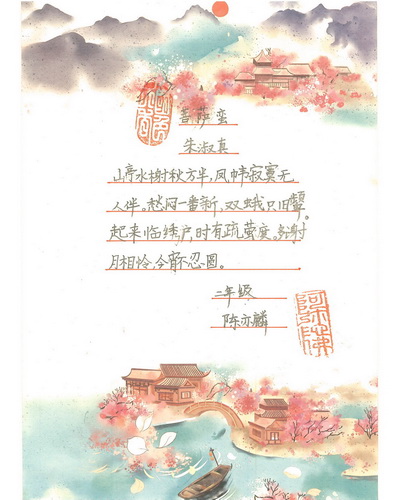 菩萨蛮
朱淑真
山亭水榭秋方半,凤帏寂寞无
人伴。愁闷一番新,双蛾只旧颦。
起来临绣户,时有疏萤度。多谢
月相怜,今宵不忍圆。
二年级
陈亦麟